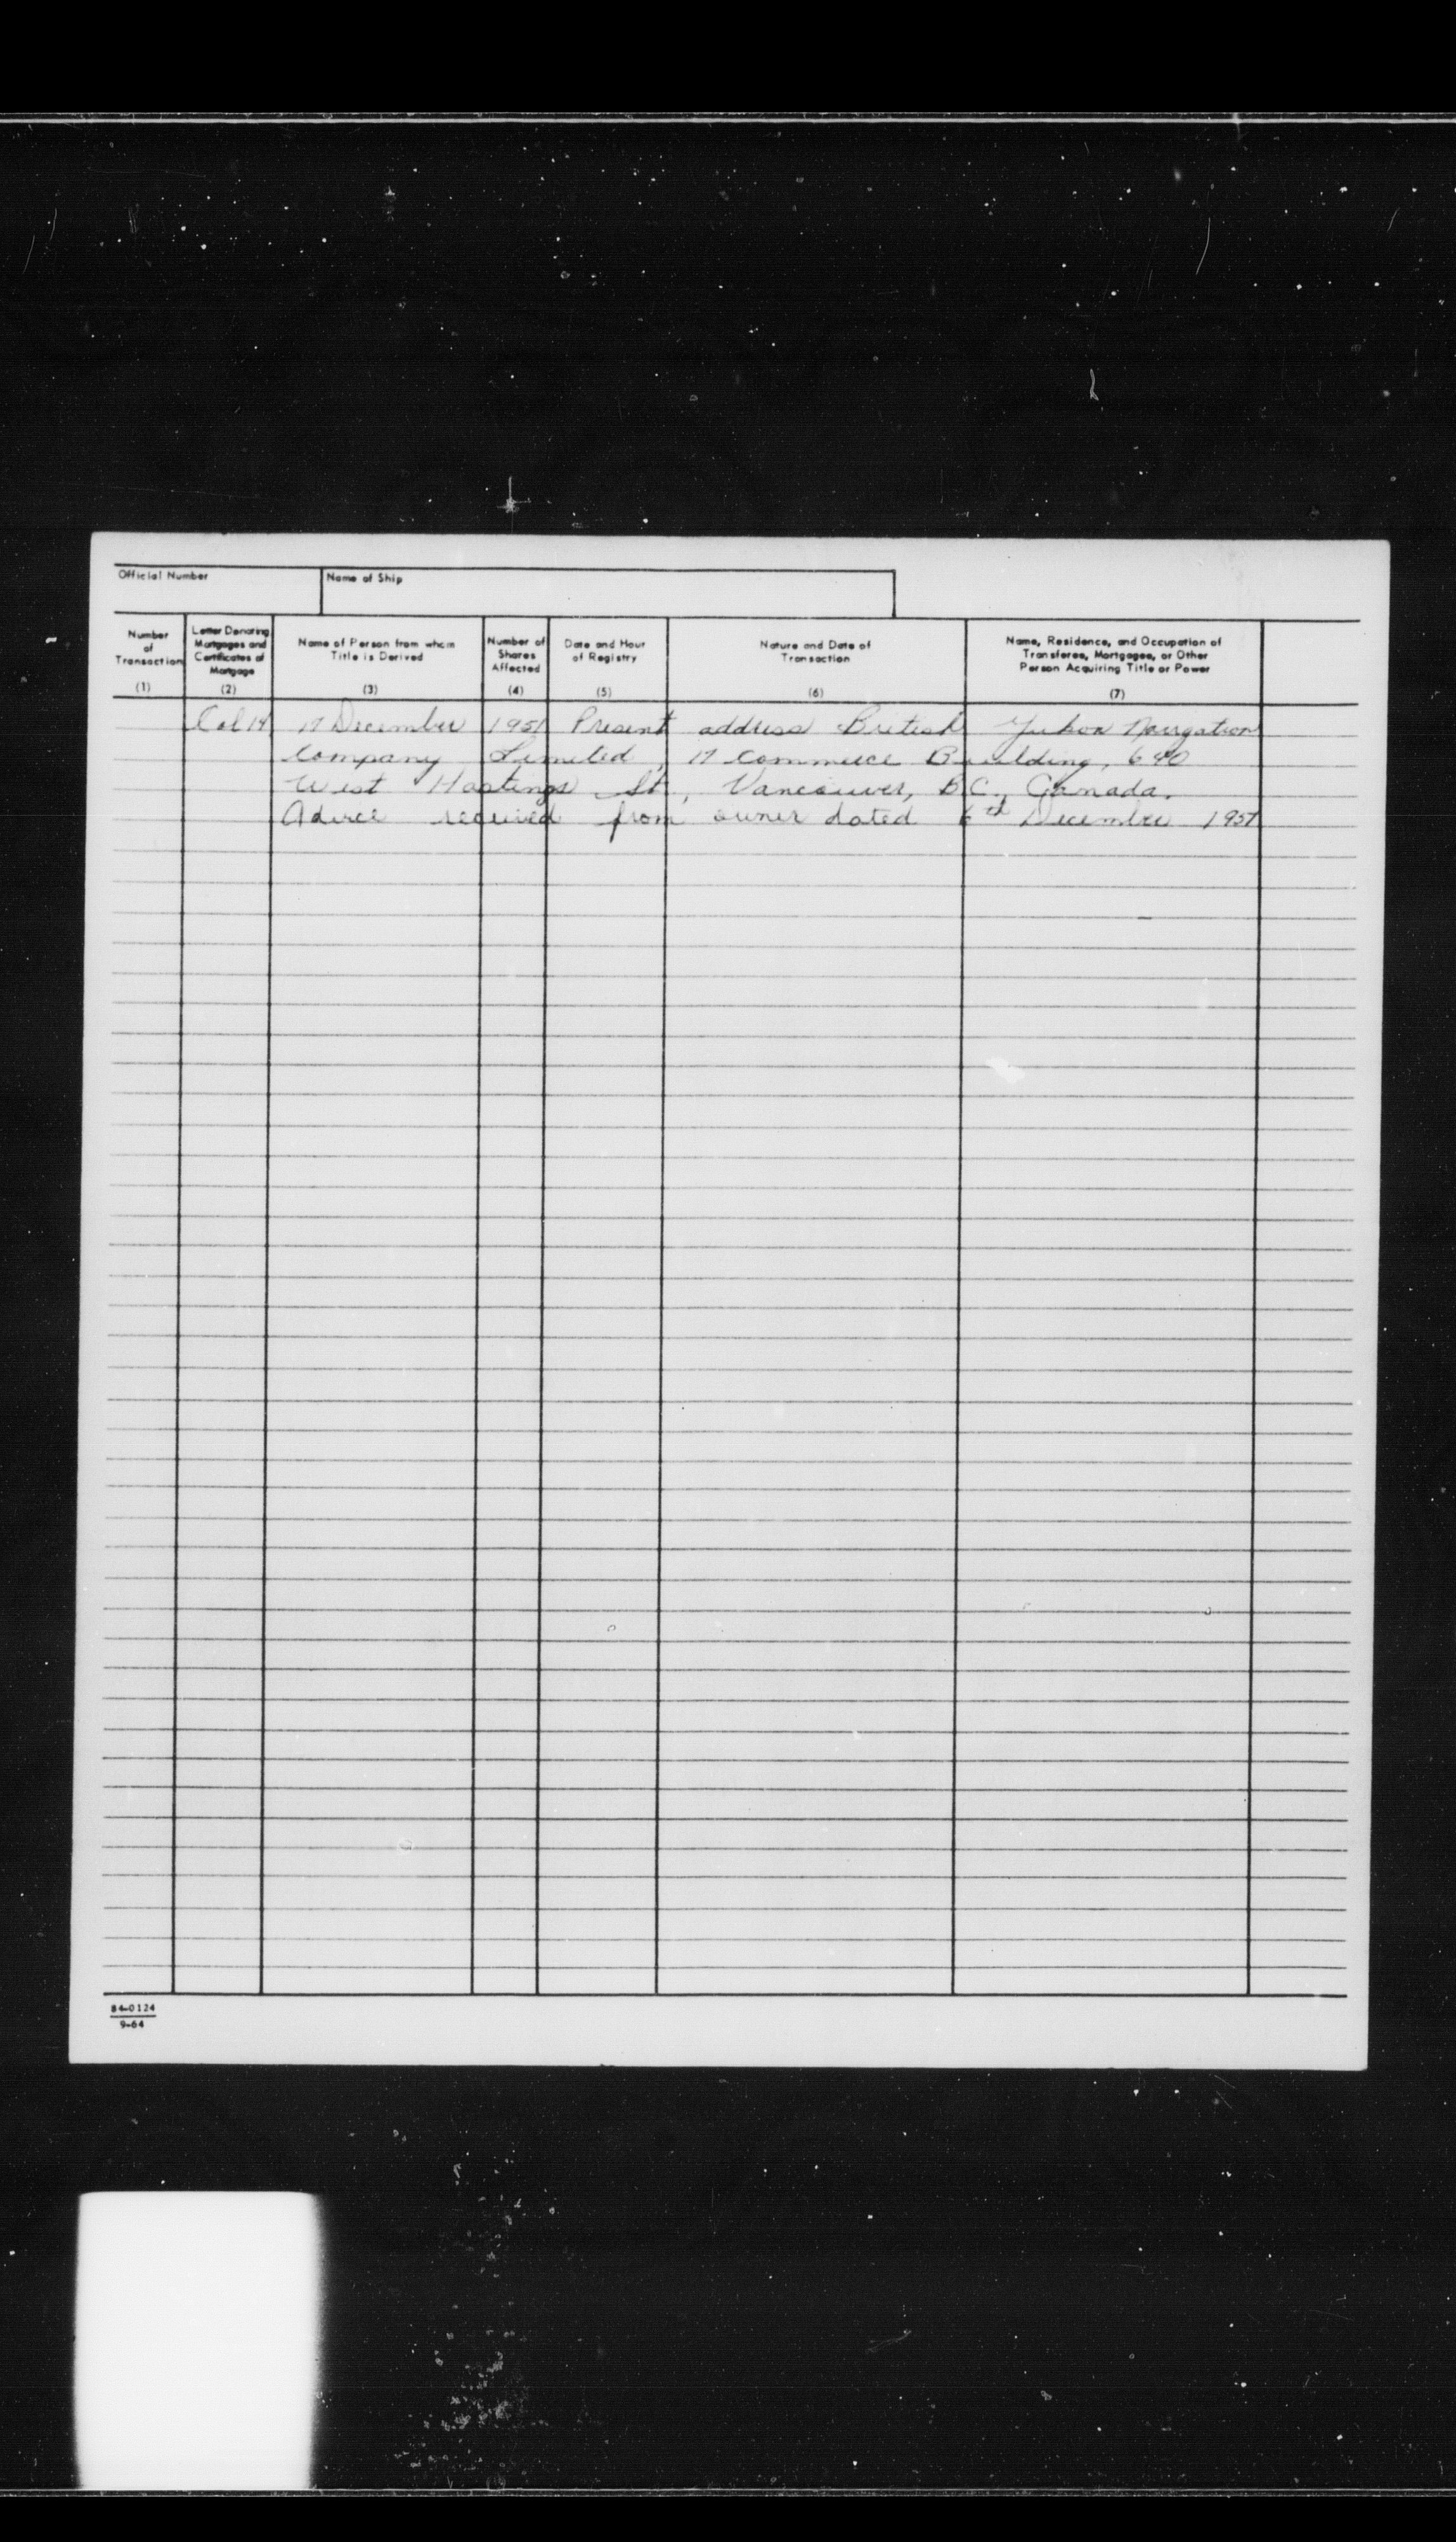 Official Number
Name of Ship
Number of Transaction (1)
Letter Denoting Mortgages and Certificates of Mortgage (2)
Name of Person from whom Title is Derived (3)
Number of Shares Affected (4)
Date and Hour of Registry (5)
Nature and Date of Transaction (6)
Name, Residence, and Occupation of Transferee, Mortgagee, or Other Person Acquiring Title or Power (7)
Col 14 17 December 1951 Present address British Yukon Navigation
Company Limited, 17 Commerce Building, 640
West Hastings St., Vancouver, B.C., Canada.
Advice received from owner dated 6th December 1951
84-0124
9-64